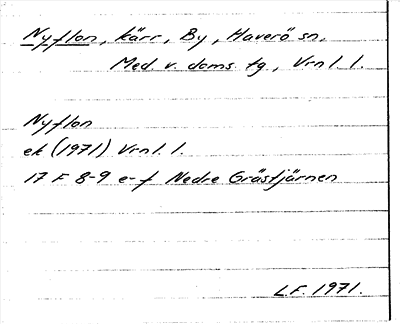 Nyflon, kärr, By, Haverö sn.
Med. v. doms. tg., Vrnl. l.
Nyflon
ek (1971) Vrnl. l.
17 F 8-9 e-f Nedre Grästjärnen
L.F. 1971.